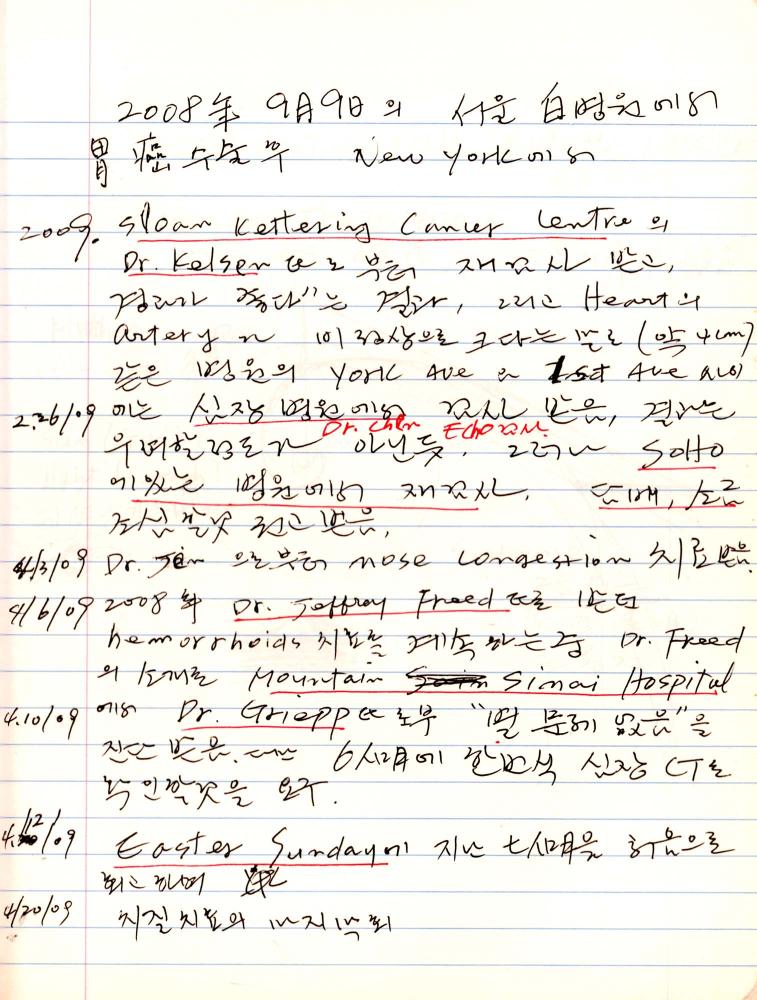 2008年 9月9日의 서울 白병원에서
胃癌 수술 후 New York에서
2009. Sloan Kettering Cancer Centre의
Dr. Kelsen 으로부터 재검사 받고,
경과가 좋다"는 결과, 그리고 Heart의
artery가 비정상으로 크다는 말로 (약 4cm)
같은 병원의 York Ave 와 1st Ave 사이
2.26/09 에는 심장 병원에서 검사 받음, 결과는
Dr. Chen Echo 검사.
우려할 정도가 아닌듯. 그러나 SoHo
에 있는 병원에서 재검사. 또 배, 소금
조심할것 권고 받음.
4/3/09 Dr. Jin 으로부터 nose congestion 치료 받음.
4/6/09 2008年 Dr. Jeffrey Freed 으로 받던
hemorrhoids 치료를 계속하는중 Dr. Freed
의 소개로 Mountain Sinai Hospital
4.10/09 에서 Dr. Griepp 으로부 "별 문제 없음"을
진단 받음. 다만 6個月에 한번씩 심장 CT로
확인할것을 요구.
4.12/09 Easter Sunday에 지난 七個月을 처음으로
회고하며
4/20/09 치질치료의 마지막회